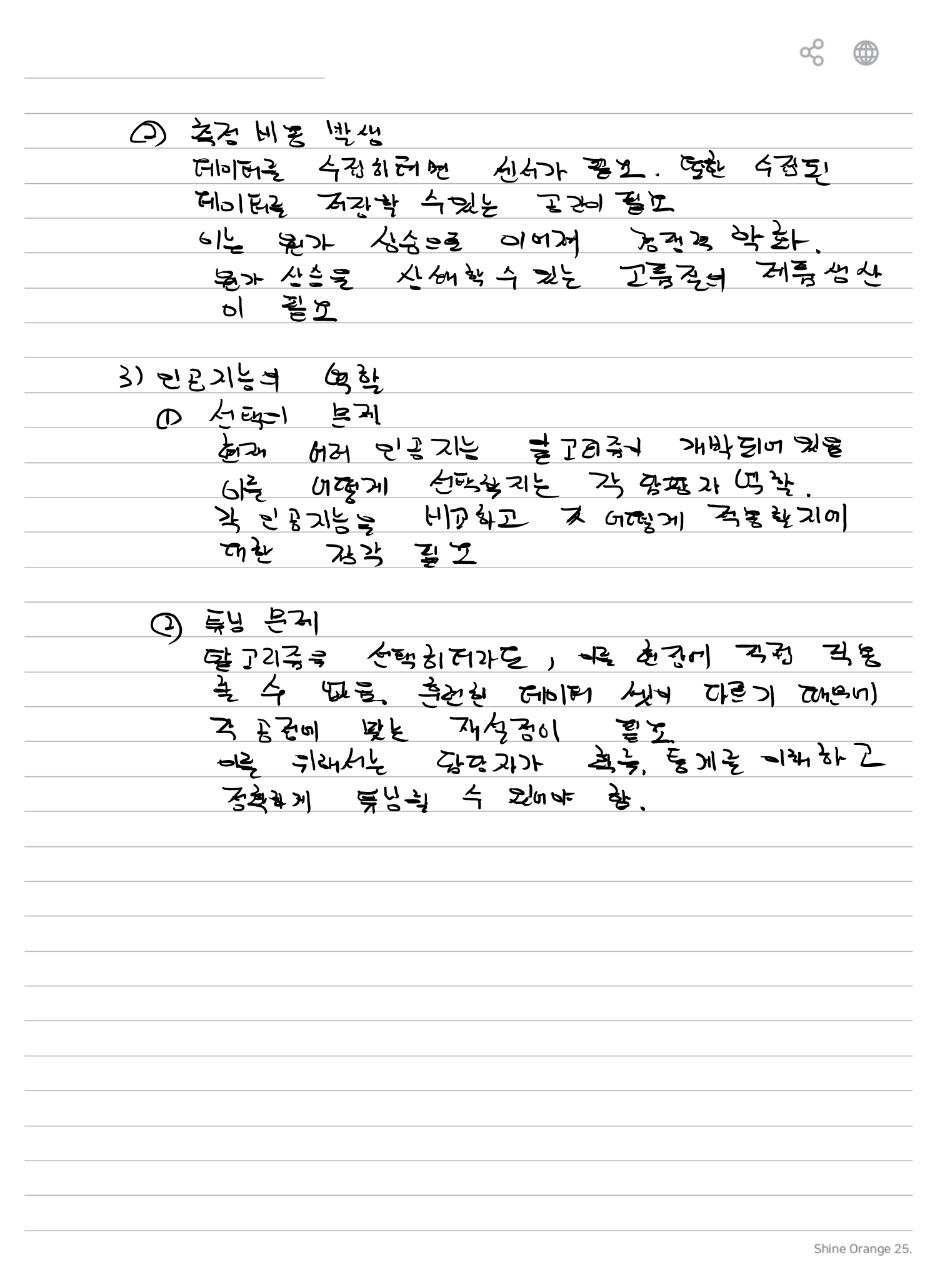 ② 측정 비용 발생
데이터를 수집하려면 센서가 필요. 또한 수집된
데이터를 저장할 수 있는 공간이 필요
이는 원가 상승으로 이어져 경쟁력 악화.
원가 상승을 상쇄할 수 있는 고품질의 제품 생산
이 필요
3) 인공지능의 역할
① 선택의 문제
현재 여러 인공지능 알고리즘이 개발되어 있음
이를 어떻게 선택할지는 각 담당자 역할.
각 인공지능을 비교하고 어떻게 적용할지에
대한 감각 필요
② 튜닝 문제
알고리즘을 선택하더라도, 이를 현장에 직접 적용
할 수 없음. 훈련한 데이터 셋이 다르기 때문에
각 공정에 맞는 재설정이 필요
이를 위해서는 담당자가 확률, 통계를 이해하고
정확하게 튜닝할 수 있어야 함.
Shine Orange 25.